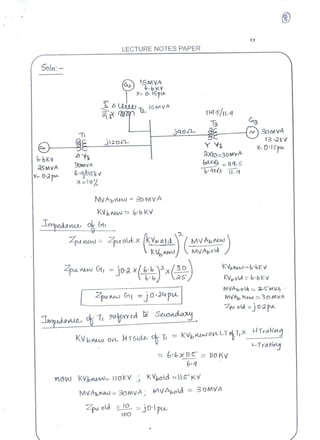 8
LECTURE NOTES PAPER
Soln:-
G2
15MVA
6.6KV
x=0.15pu
15MVA
119.5/11.9
T1
j120Ω
j90Ω
G3
30MVA
13.2KV
x=0.15pu
G1
6.6KV
25MVA
x=0.2pu
Δ Y
30MVA
6.9/115KV
x=10%
Y Y
3x10=30MVA
MVAb new = 30MVA
KVb new = 6.6KV
Impedance of G1
Zpu new = Zpu old × (KVb old / KVb new)² × (MVAb new / MVAb old)
Zpu new G1 = j0.2 × (6.6/6.6)² × (30/25)
Zpu new G1 = j0.24pu
KVb new = 6.6KV
KVb old = 6.6KV
MVAb old = 25MVA
MVAb new = 30MVA
Zpu old = j0.2pu
Impedance of T1 referred to Secondary
KVb new on HT side of T1 = KVb new on LT of T1 × HT rating / LT rating
= 6.6 × 115/6.9 = 110KV
now KVb new = 110KV ; KVb old = 115KV
MVAb new = 30MVA ; MVAb old = 30MVA
Zpu old = 10/100 = j0.1pu